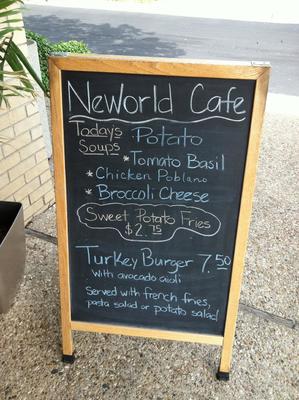 NeWorld Cafe
Today's Soups Potato
* Tomato Basil
* Chicken Poblano
* Broccoli Cheese
Sweet Potato Fries
$2.75
Turkey Burger 7.50
With avocado aioli
Served with french fries,
pasta salad or potato salad